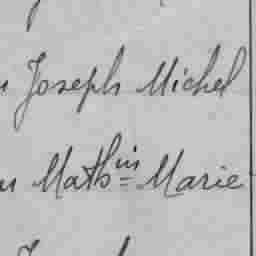 Joseph Michel
Math^in = Marie